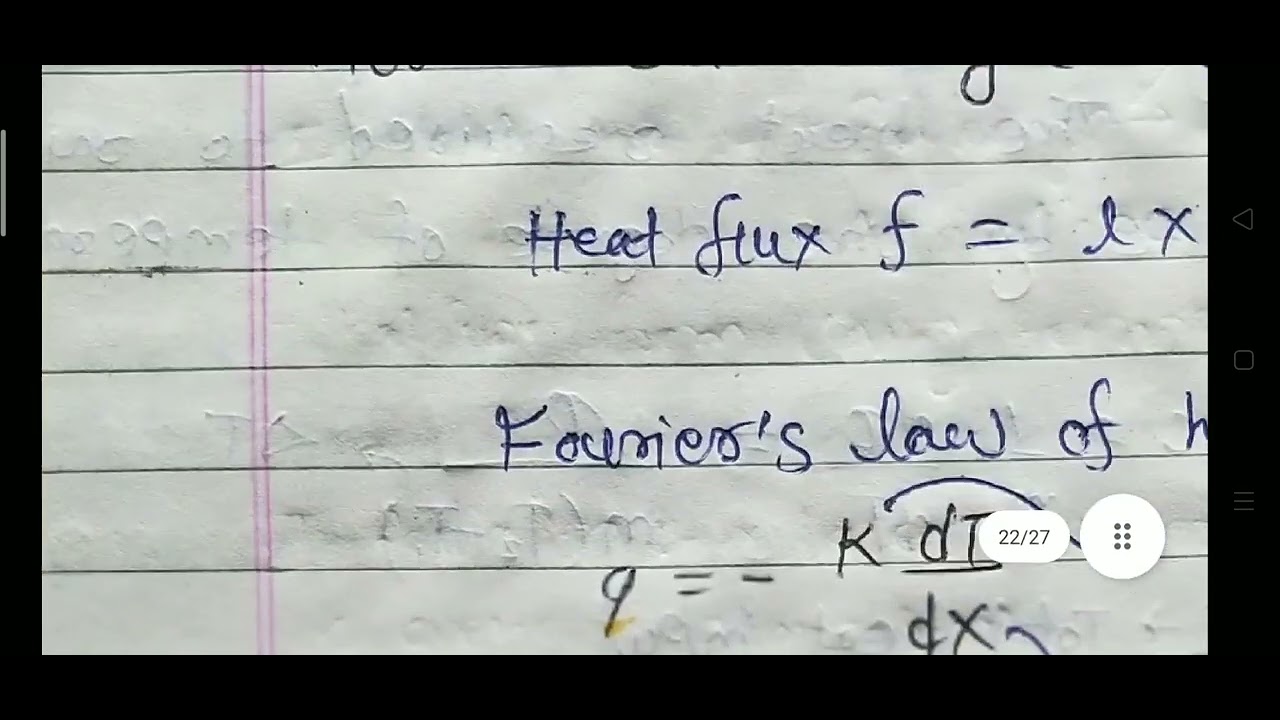 Heat flux f = l x
Fourier's law of h
q = - K dT
dx
22/27